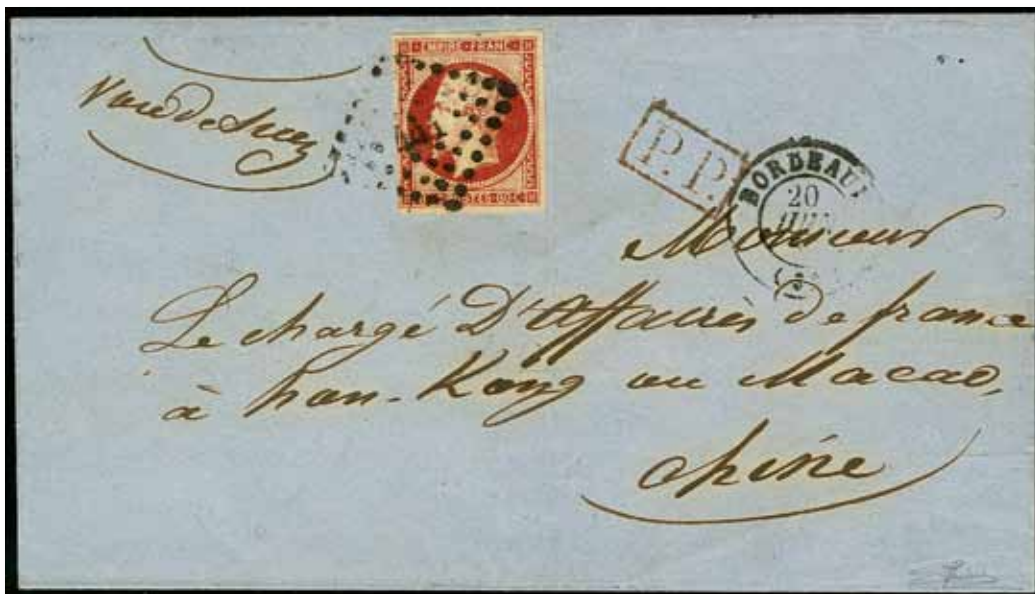 Voie de Suez
EMPIRE FRANC
POSTES 80 C
P.P.
BORDEAUX
20
JUIN
Monsieur
Le chargé D'Affaires de france
à hon-Kong ou Macao,
chine